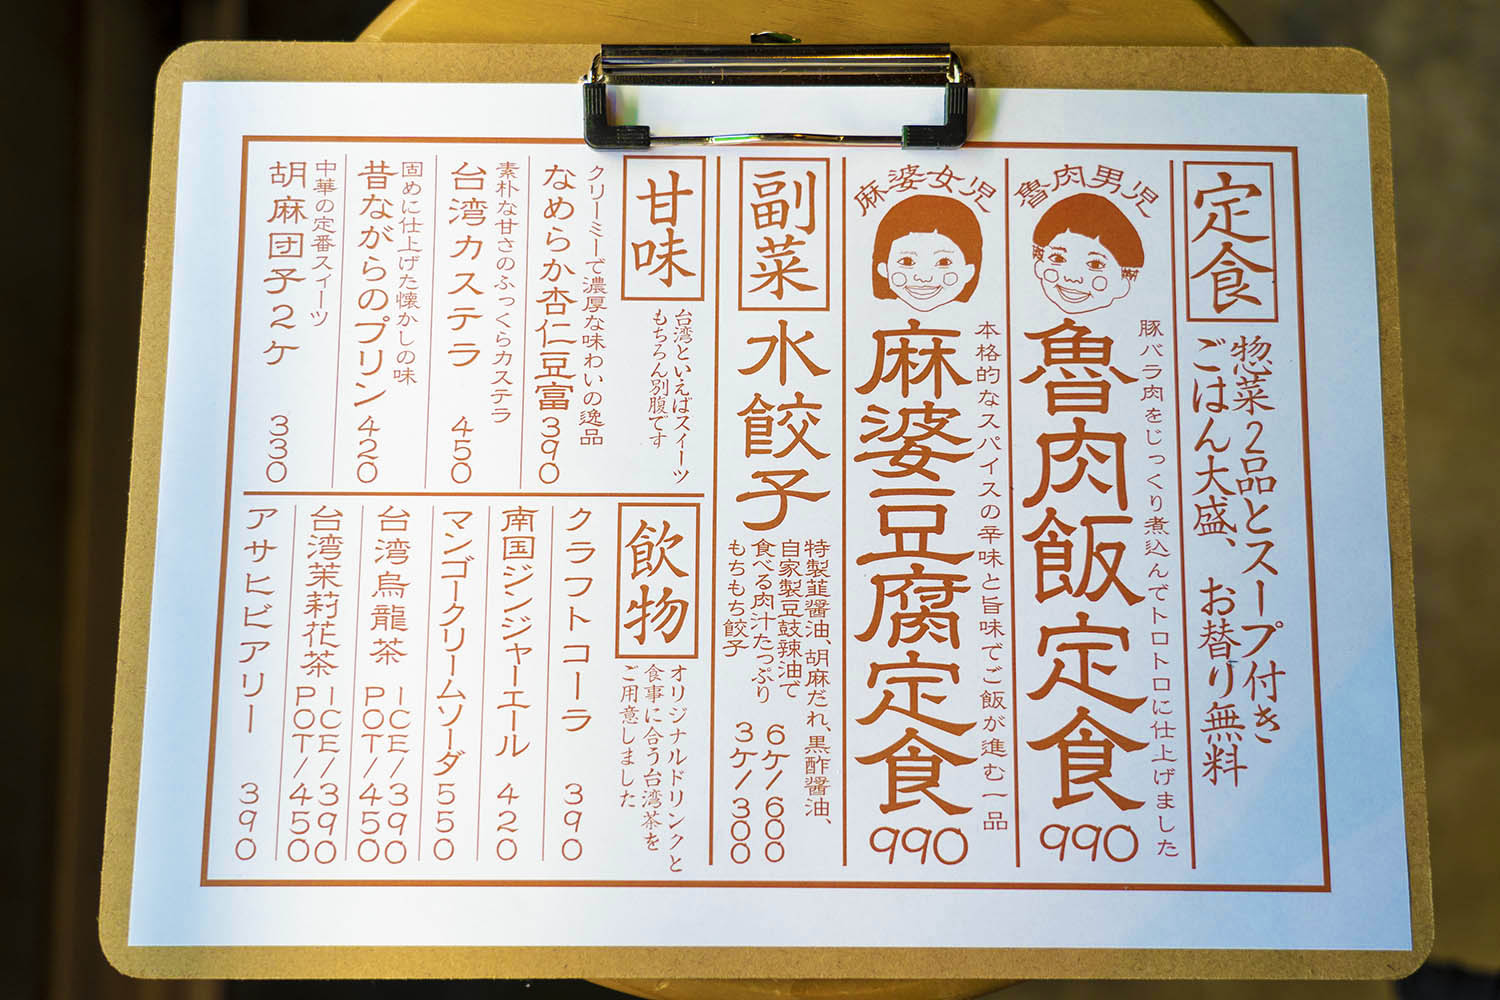 定食
惣菜2品とスープ付き
ごはん大盛、お替り無料
魯肉男児
豚バラ肉をじっくり煮込んでトロトロに仕上げました
魯肉飯定食
990
麻婆女児
本格的なスパイスの辛味と旨味でご飯が進む一品
麻婆豆腐定食
990
副菜
水餃子
特製韮醤油、胡麻だれ、黒酢醤油、
自家製豆鼓辣油で
食べる肉汁たっぷり
もちもち餃子
6ケ/600
3ケ/300
甘味
台湾といえばスイーツ
もちろん別腹です
クリーミーで濃厚な味わいの逸品
なめらか杏仁豆富390
素朴な甘さのふっくらカステラ
台湾カステラ 450
固めに仕上げた懐かしの味
昔ながらのプリン420
中華の定番スィーツ
胡麻団子2ケ 330
飲物
オリジナルドリンクと
食事に合う台湾茶を
ご用意しました
クラフトコーラ 390
南国ジンジャーエール 420
マンゴークリームソーダ550
台湾烏龍茶
ICE/390
POT/450
台湾茉莉花茶
ICE/390
POT/450
アサヒビアリー 390